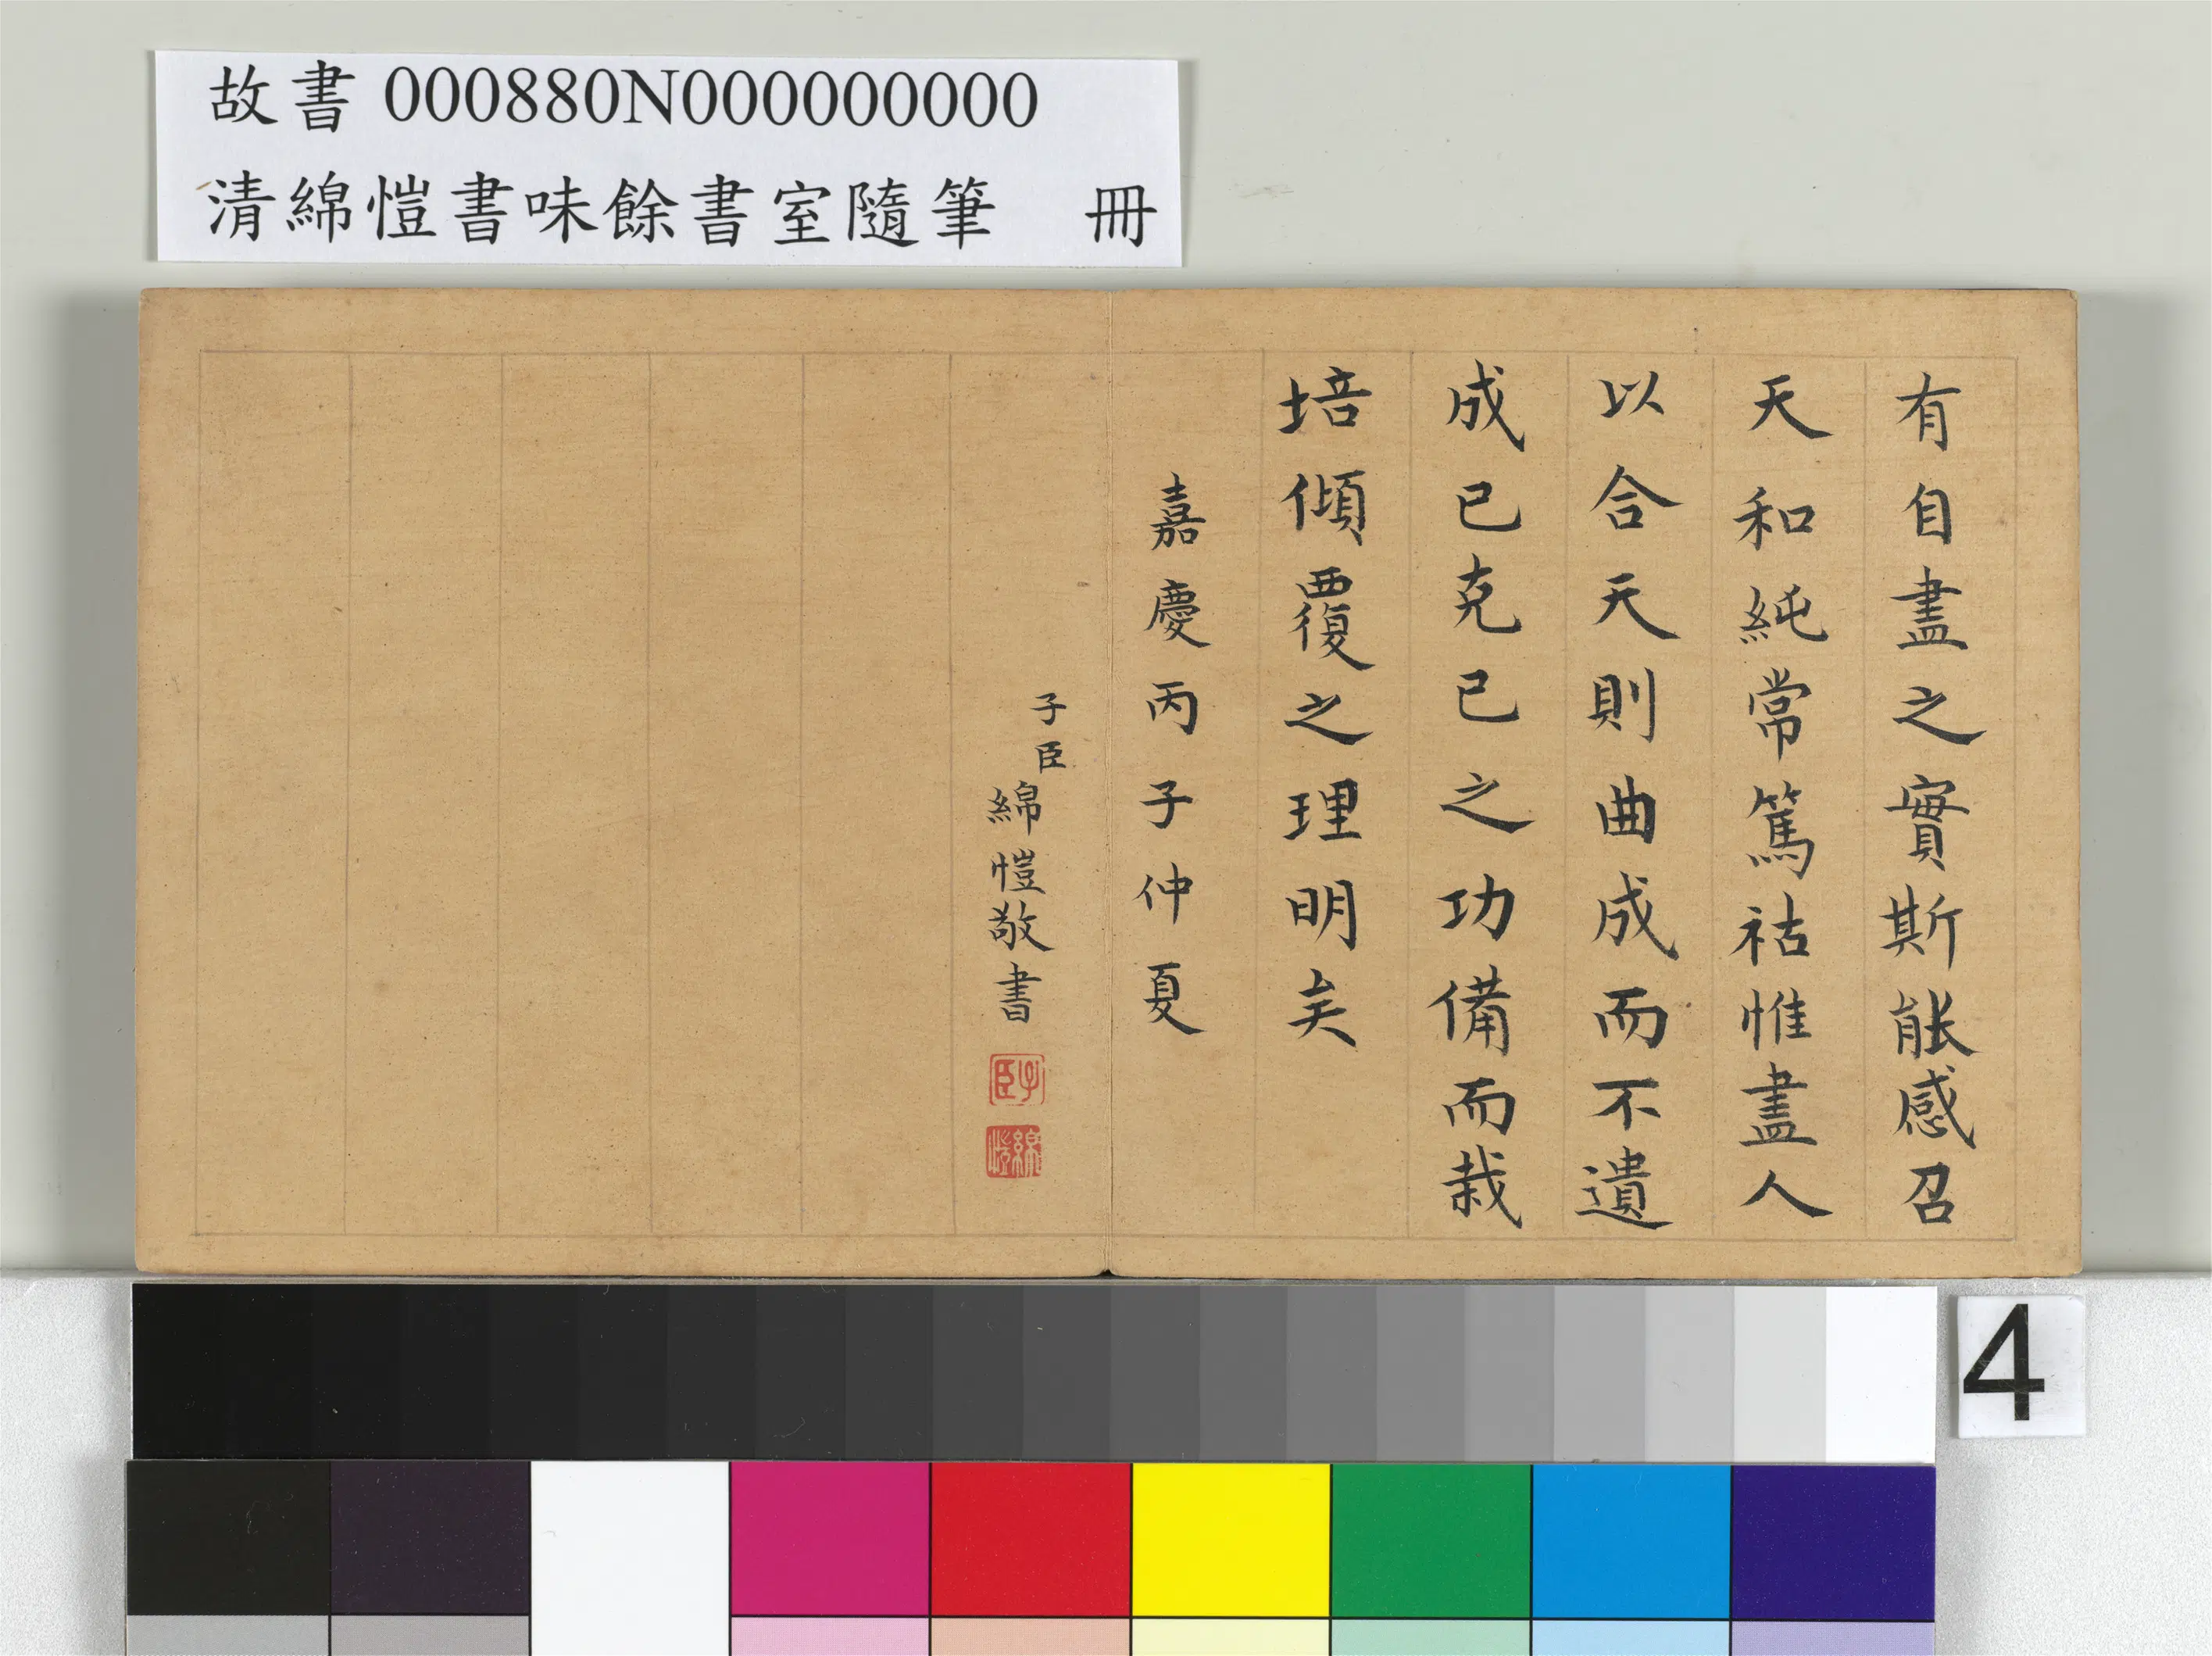 故書 000880N000000000
清綿愷書味餘書室隨筆 冊
有自盡之實斯能感召
天和純常篤祜惟盡人
以合天則曲成而不遺
成已克已之功備而栽
培傾覆之理明矣
嘉慶丙子仲夏
子臣綿愷敬書
子臣
綿愷
4